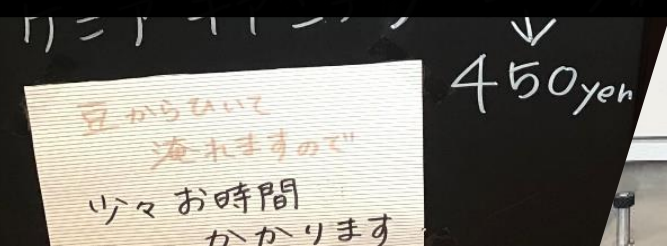 450yen
豆からひいて
淹れますので
少々お時間
かかります